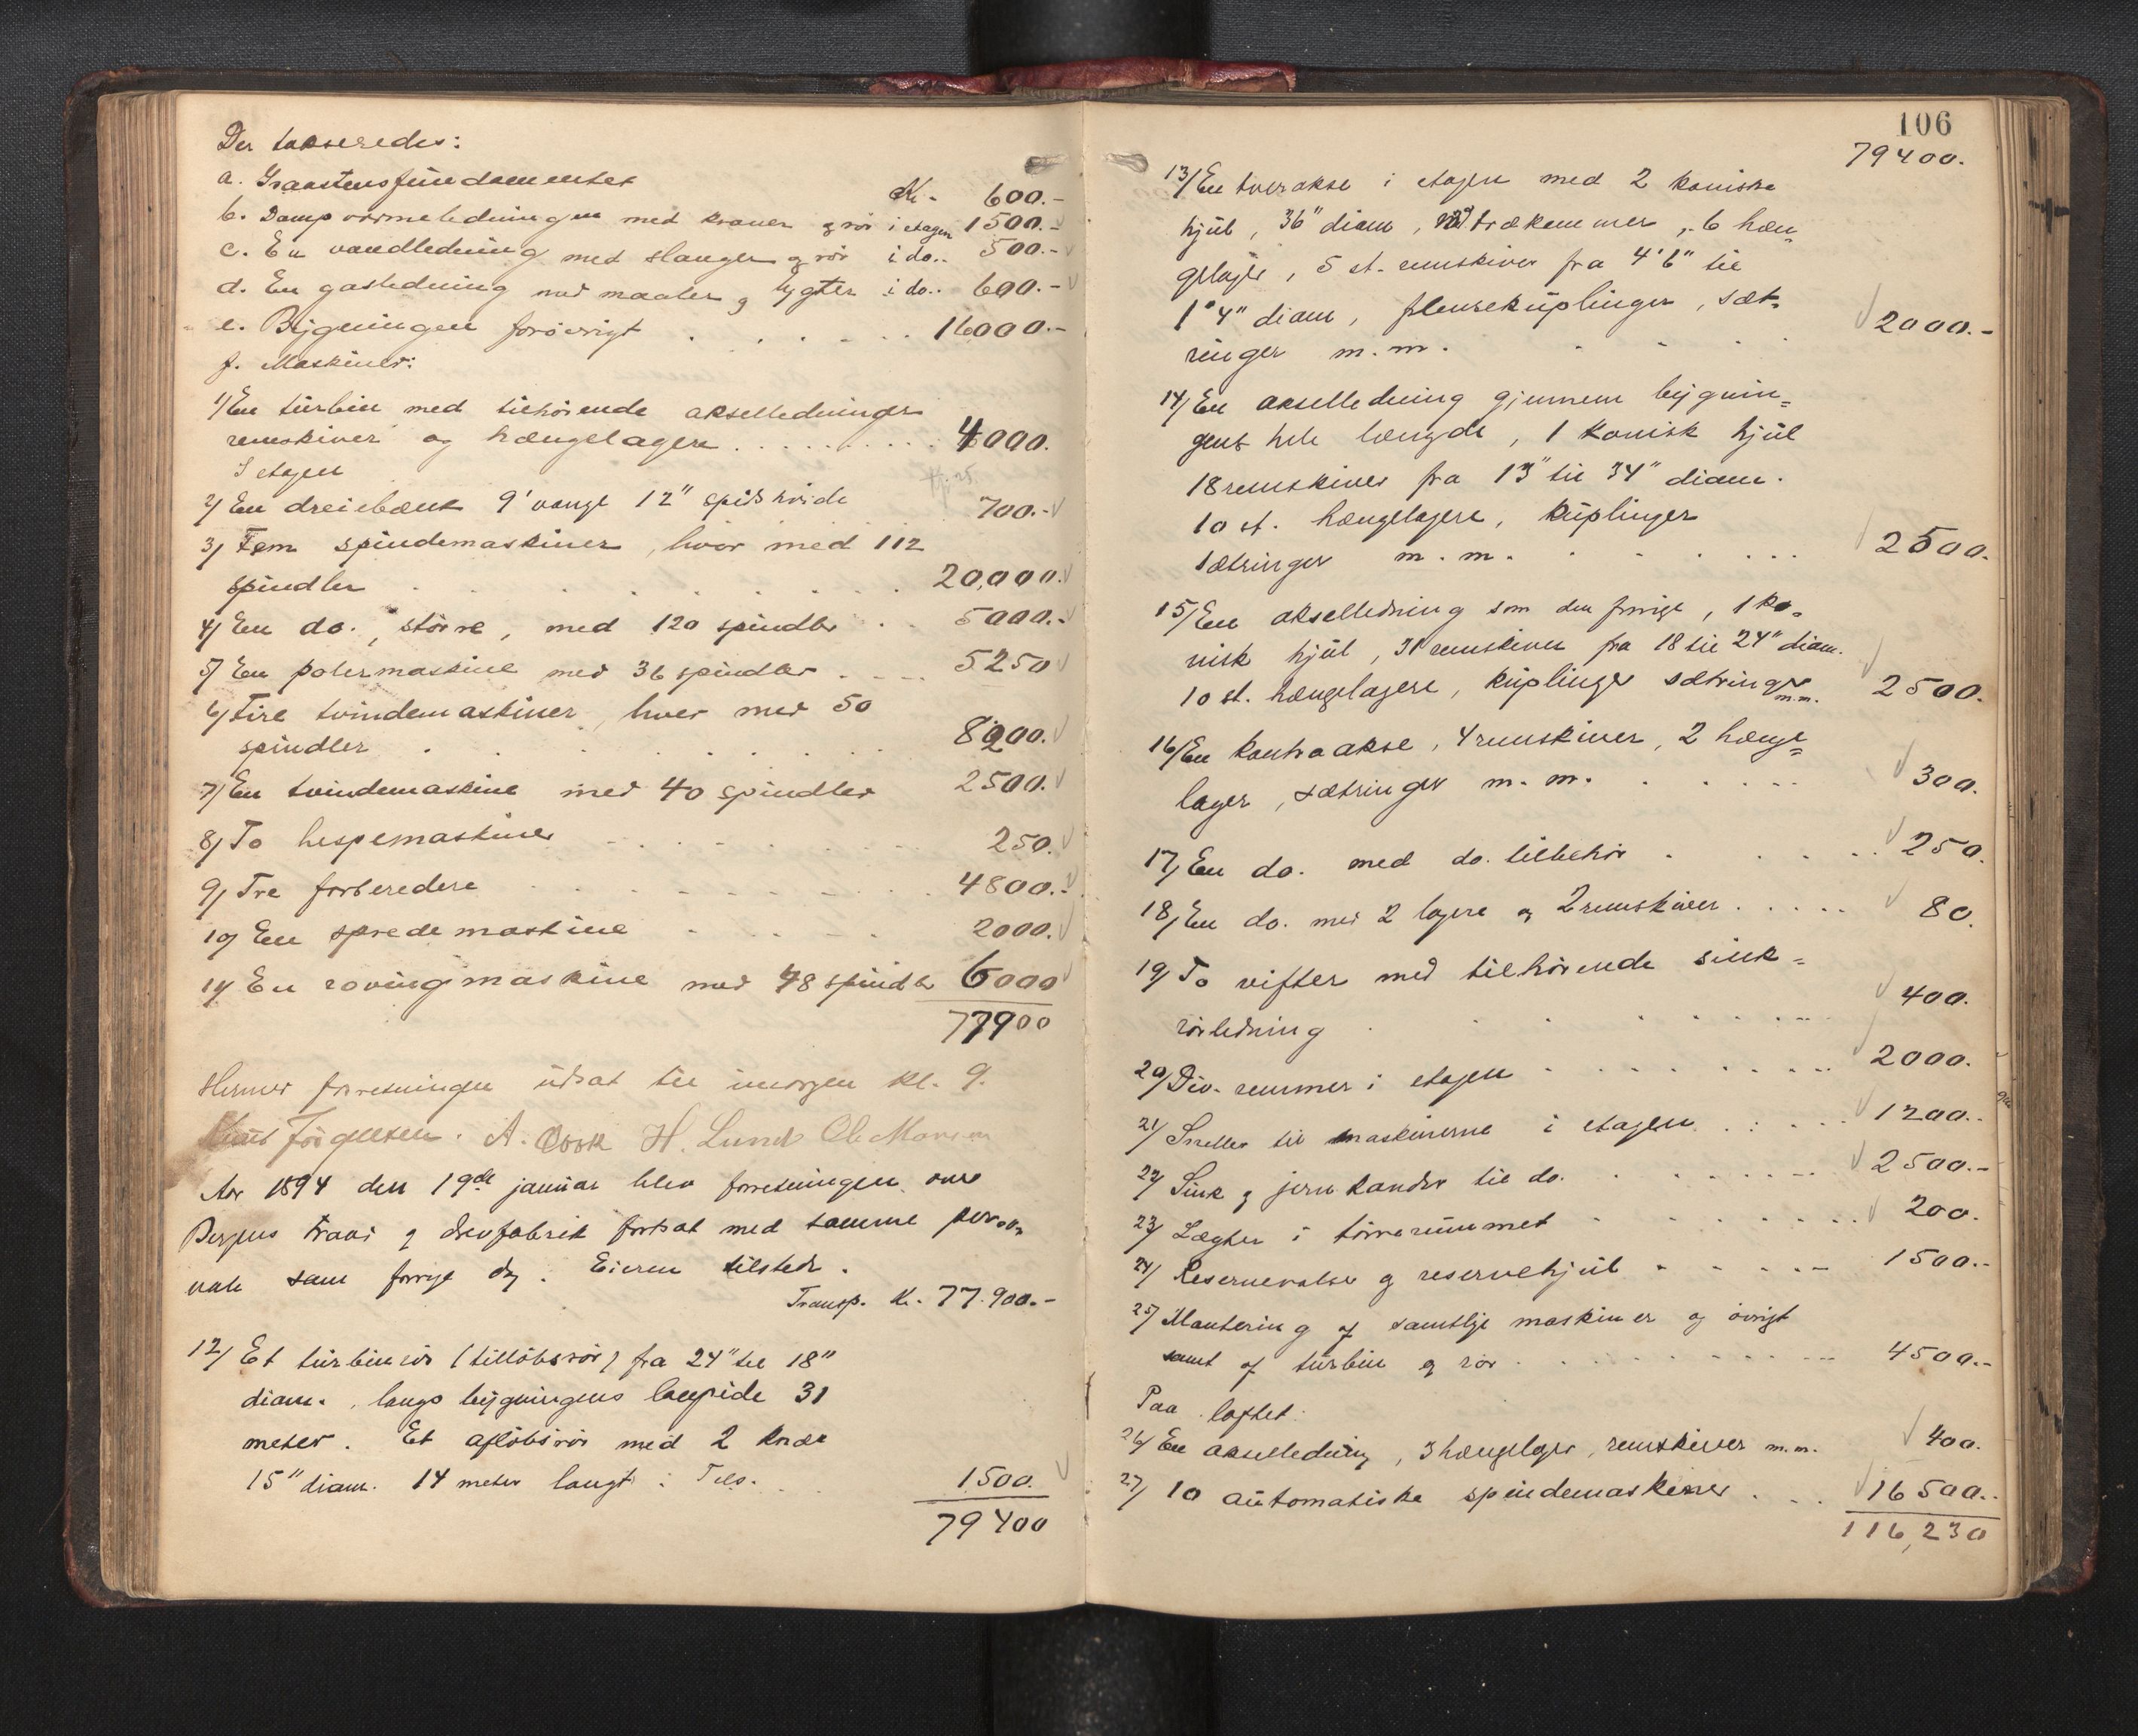 Der takseredes:
a. Graastensfundamentet Kr. 600.-
b. Dampvarmeledningen med kraner og rör i etagen 1500.-
c. En vandledning med slanger og rör i do.. 500.-
d. En gasledning med maaler og lygter i do.. 600.-
e. Bygningen forövrigt . . . . . . 16000.-
f. Maskiner:
1) En türbin med tilhörende akselledninger
remskiver og hængelagere . . . . . . . . . 4000.
I etagen
2) En dreiebænk 9' vange 12" spidshöide 700.-
3) Fem spindemaskiner, hver med 112
spindler . . . . . . . . 20,000.
4) En do., större, med 120 spindler . . 5000.-
5) En polermaskine med 36 spindler . . . . 5250
6) Fire tvindemaskiner, hver med 50
spindler . . . . . . . . 8200.
7) En tvindemaskine med 40 spindler 2500.
8) To hespemaskiner . . . . . . 250.
9) Tre forberedere . . . . . . . . 4800.-
10) En spredemaskine . . . . . 2000.
11) En rovingmaskine med 48 spindler 6000
77900
Herner forretningen üdsat til imorgen kl. 9.
Jörgensen. A. Cook H. Lund Ole Monsen
Aar 1894 den 19de januar blev forretningen over
Bergens traad og drevfabrik fortsat med samme perso-
nale som forrige dag. Eieren tilstede.
Transp. Kr. 77.900.-
12) Et türbinrör (tillöbsrör) fra 24" til 18"
diam., langs bygningens langside 31
meter. Et aflöbsrör med 2 knæ
15" diam. 14 meter langt: Tils. . . 1500.
79400
106
79400.
13) En tverakse i etagen med 2 koniske
hjül, 36" diam, med trækammer, 6 hæn-
gelager, 5 st. remskiver fra 4'6" til
1'4" diam, flensekuplinger, sæt-
ringer m.m. . . . . 2000.-
14) En akselledning gjennem bygnin=
gens hele længde, 1 konisk hjül
18 remskiver fra 13" til 34" diam.
10 st. hængelagere, küplinger
sætringer m.m. . . . . . . 2500.
15) En akselledning som den forrige, 1 ko-
nisk hjül, 31 remskiver fra 18 til 24" diam.
10 st. hængelagere, küplinger sætringer m.m. 2500.
16) En kontraakse, 4 remskiver, 2 hænge=
lager, sætringer m.m. . . . . . 300.
17) En do. med do. tilbehör . . . . . 250.
18) En do. med 2 lagere og 2 remskiver . . . . . 80.
19) To vifter med tilhörende sink=
rörledning . . . . . . . . 400.
20) Div. remmer i etagen . . . . . . . . . 2000.
21) Sneller til maskinerne i etagen . . . . . 1200..
22) Sink og jernkander til do. . . . . . . . 2500.-
23) Lægter i törrerummet . . . . . . . 200.
24) Reservevalser og reservehjül . . . . . 1500.-
25) Montering af samtlige maskiner og övrigt
samt af türbin og rör . . . . . . . . . . 4500.-
Paa loftet:
26) En akselledning, 3 hængelager, remskiver m.m. 400.
27) 10 automatiske spindemaskiner . . . 16500..
116,230